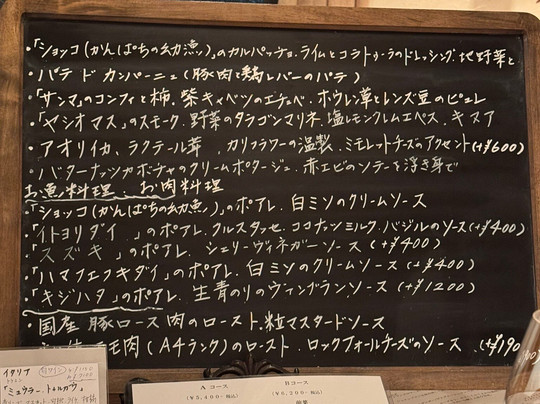 ・「ショッコ(かんぱちの幼魚)」のカルパッチョ.ライムとコラトゥーラのドレッシング.地野菜と
・パテ ド カンパーニュ(豚肉と鶏レバーのパテ)
・「サンマ」のコンフィと柿.紫キャベツのエチュベ.ホウレン草とレンズ豆のピュレ
・「ヤシオマス」のスモーク.野菜のタラゴンマリネ.塩レモンクレムエペス.キヌア
・アオリイカ、ラクテール茸.カリフラワーの温製.ミモレットチーズのアクセント(+¥600)
・バターナッツカボチャのクリームポタージュ.赤エビのソテーを浮き身で
お魚料理、お肉料理
・「ショッコ(かんぱちの幼魚)」のポアレ.白ミソのクリームソース
「イトヨリダイ」のポアレ.クルスタッセ.ココナッツミルク.バジルのソース(+¥400)
・「スズキ」のポアレ.シェリーヴィネガーソース(+¥400)
・「ハマフエフキダイ」のポアレ.白ミソのクリームソース(+¥400)
・「キジハタ」のポアレ.生青のりのヴァンブランソース(+¥1200)
・国産 豚ロース肉のロースト.粒マスタードソース
モモ肉(A4ランク)のロースト.ロックフォールチーズのソース.(+¥190
イタリア
「ミュウラー・トゥルガウ」
Aコース
(¥5,400-税込)
Bコース
(¥6,200-税込)
前菜